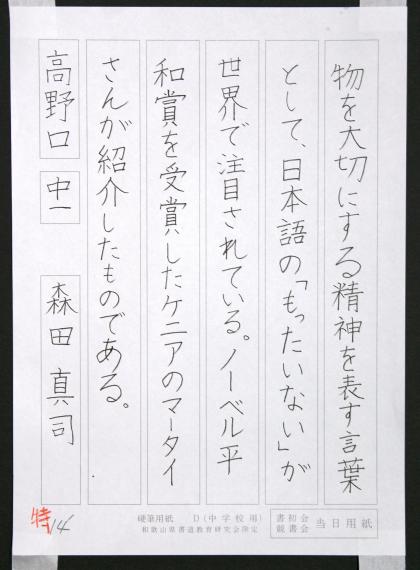 物を大切にする精神を表す言葉
として、日本語の「もったいない」が
世界で注目されている。ノーベル平
和賞を受賞したケニアのマータイ
さんが紹介したものである。
高野口 中一 森田真司
特 14
硬筆用紙 D(中学校用)
和歌山県書道教育研究会指定
書初会
競書会
当日用紙